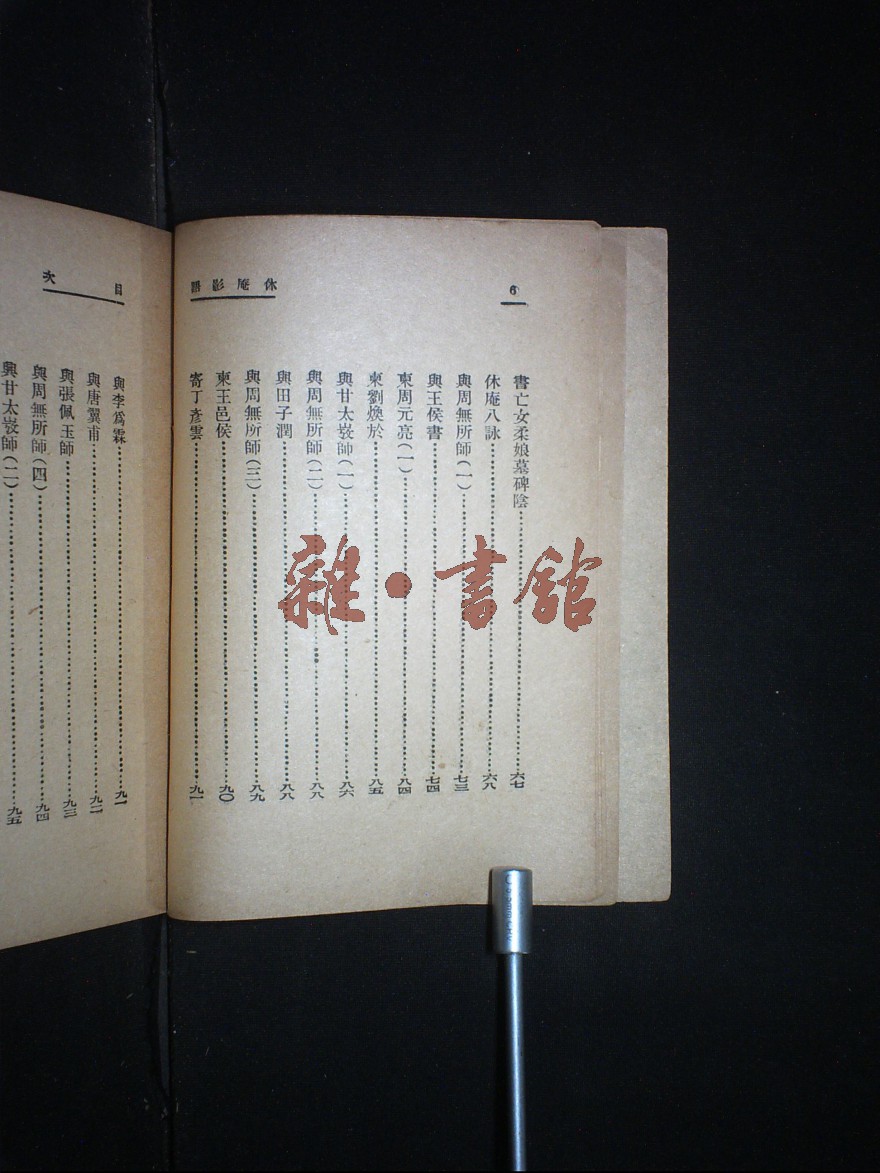 6
休庵影語
書亡女柔娘墓碑陰……六七
休庵八詠……六八
與周無所師(一)……七三
與王侯書……七四
柬周元亮(一)……八四
柬劉煥於……八五
與甘太㟲師(一)……八六
與周無所師(二)……八八
與田子潤……八八
與周無所師(三)……八九
柬王邑侯……九〇
寄丁彥雲……九一
目次
與李爲霖……九一
與唐翼甫……九二
與張佩玉師……九三
與周無所師(四)……九四
與甘太㟲師(二)……九五
雜·書館